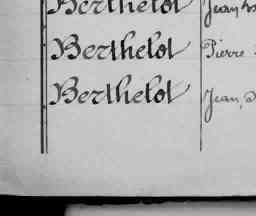 Berthelot Jean
Berthelot Pierre
Berthelot Jean,